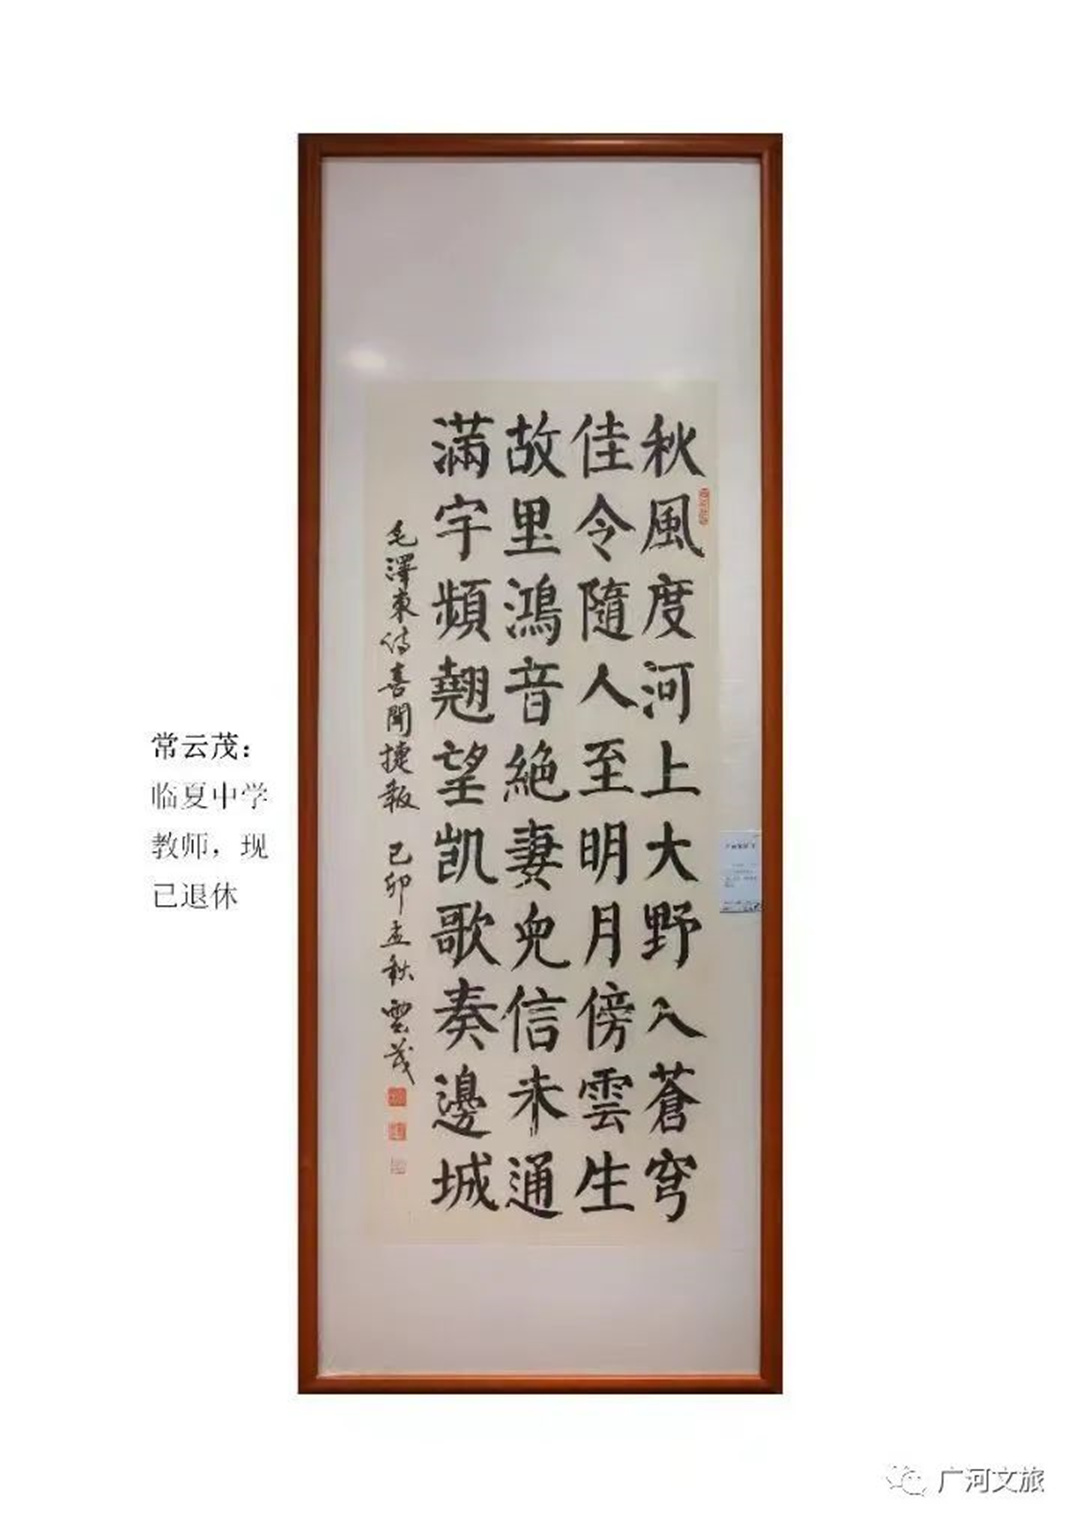 秋風度河上大野入蒼穹
佳令隨人至明月傍雲生
故里鴻音絶妻兒信未通
滿宇頻翹望凯歌奏邊城
毛澤東诗喜聞捷報 己卯孟秋 雲茂
常云茂：
临夏中学
教师，现
已退休
广河文旅